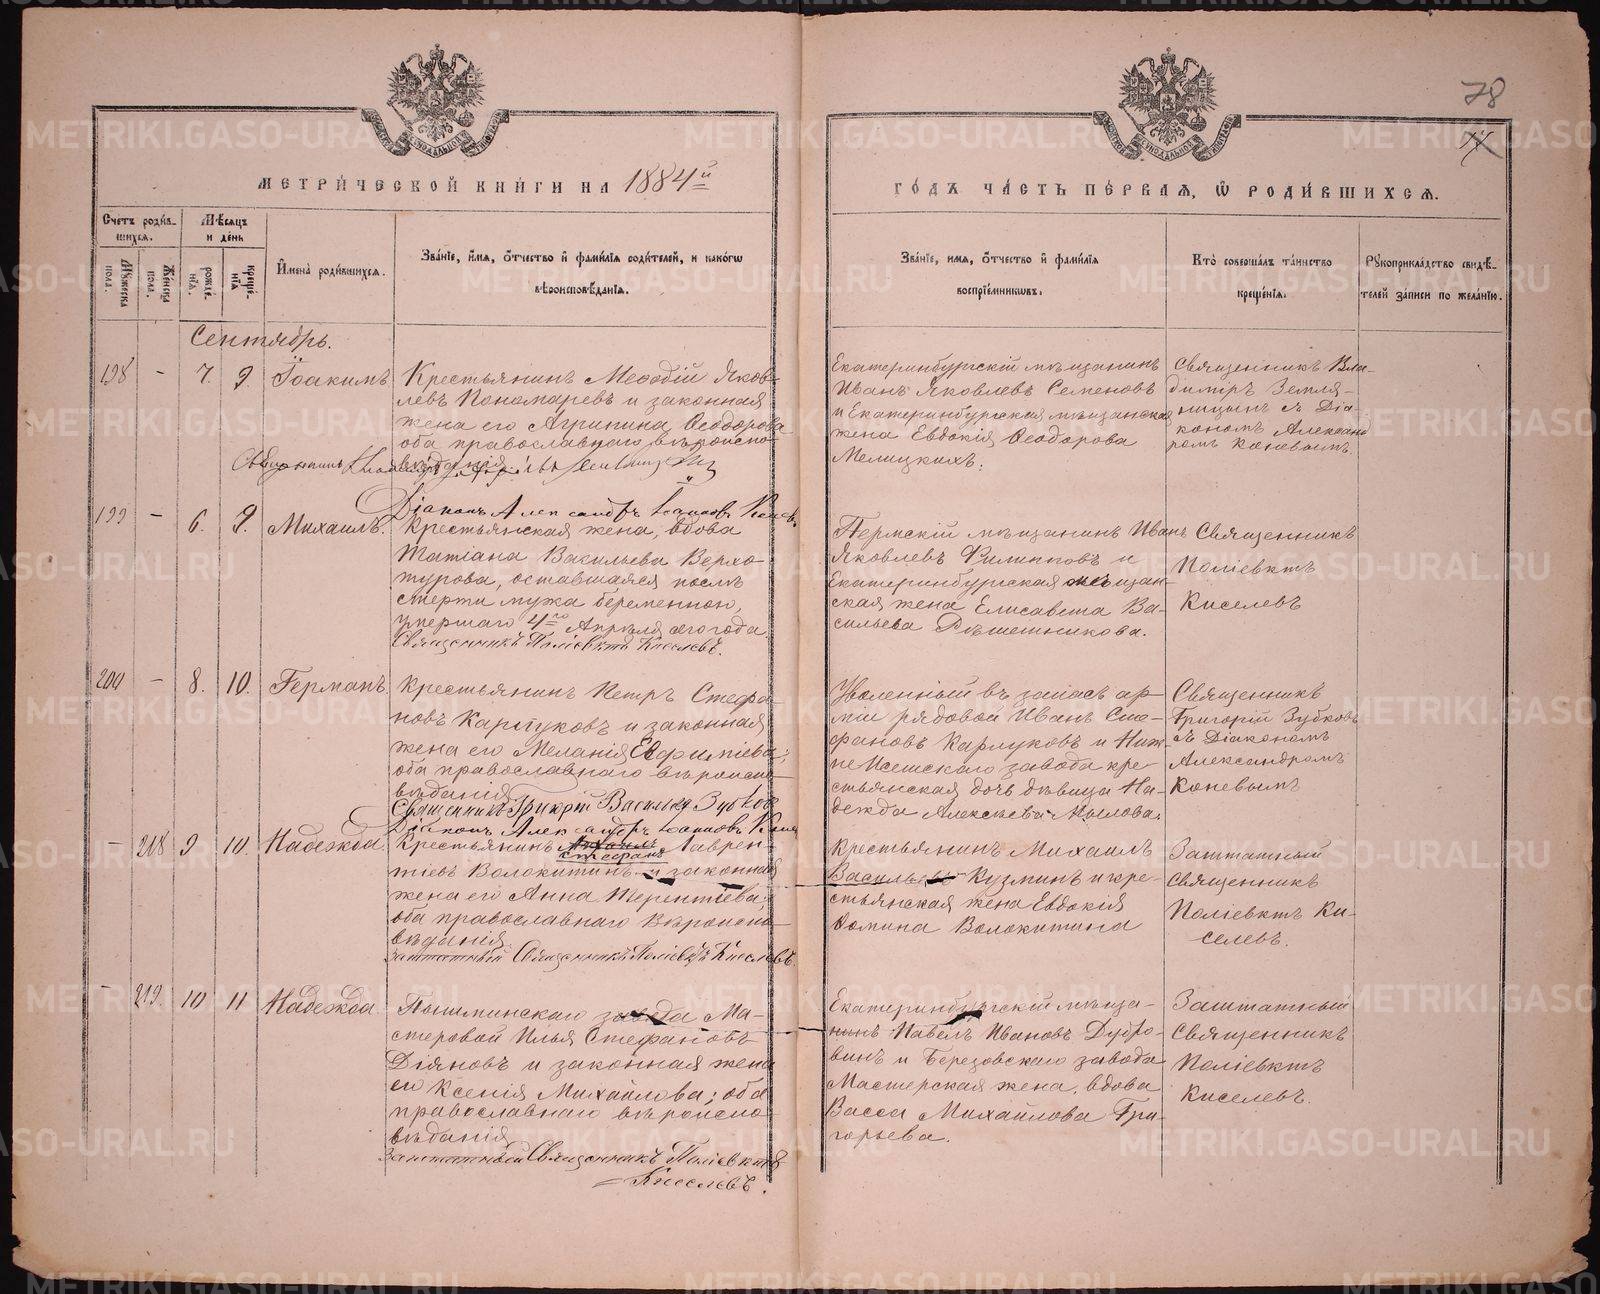 78
МЕТРИ́ЧЕСКОЙ КНИ́ГИ НА 1884й
ГО́ДЪ ЧА́СТЬ ПЕ́РВАЯ, Ѿ РОДИ́ВШИХСЯ.
Счетъ роди́вшихся.
Му́жеска пола.
Же́нска пола.
Мѣ́сяцъ и де́нь
рожде́нїя.
креще́нїя
И҆мена̀ роди́вшихся.
Зва́нїе, и҆́мя, ѻ҆́тчество и҆ фами́лїя роди́телей, и како́гѡ
вѣроисповѣ́данїя.
Зва́нїе, имя, ѻ҆́тчество и҆ фами́лїя
воспрїе́мниковъ.
Кто̀ соверша́лъ та́инство
креще́нїя.
Рꙋкоприкла́дство свидѣ́-
телей за́писи по жела́нїю.
Сентябрь.
198 - 7. 9. Іоакимъ
Крестьянинъ Меѳодій Яков-
левъ Пономаревъ и законная
жена его Агрипина Ѳеодорова
оба православнаго вѣроиспо-
вѣданія
Екатеринбургскій мѣщанинъ
Иванъ Яковлевъ Семеновъ
и Екатеринбургская мѣщанская
жена Евдокія Ѳеодорова
Мелицкихъ.
Священникъ Вла-
диміръ Земля-
ницынъ съ Діа-
кономъ Александ
ромъ Коневымъ.
Діаконъ Александръ Іоанновъ Коневъ
199 - 6. 9. Михаилъ.
Крестьянская жена, вдова
Татіана Васильева Верхо-
турова, оставшаяся послѣ
смерти мужа беременною,
умершаго 4го Апрѣля сего года.
Священникъ Поліевктъ Киселевъ.
Пермскій мѣщанинъ Иванъ
Яковлевъ Филипповъ и
Екатеринбургская мѣщан-
ская жена Елисавета Ва-
сильева Рѣшетникова.
Священникъ
Поліевктъ
Киселевъ
200 - 8. 10. Германъ.
Крестьянинъ Петръ Стефа-
новъ Карлуковъ и законная
жена его Меланія Евфиміева;
оба православнаго вѣроиспо-
вѣданія
Священникъ Григорій Васильевъ Зубковъ
Діаконъ Александръ Іоанновъ Коневъ
Уволенный въ запасъ ар-
міи рядовой Иванъ Сте-
фановъ Карлуковъ и Ниж-
не Исетскаго завода кре-
стьянская дочь дѣвица На-
дежда Алексѣева Мылова.
Священникъ
Григорій Зубковъ
съ Діакономъ
Александромъ
Коневымъ
- 218 9 10. Надежда.
Крестьянинъ Стефанъ Лаврен-
тьевъ Волокитинъ и законная
жена его Анна Терентіева;
оба православнаго вѣроиспо-
вѣданія
Заштатный Священникъ Поліевктъ Киселевъ.
Крестьянинъ Михаилъ
Васильевъ Кузминъ и кре-
стьянская жена Евдокія
Фомина Волокитина
Заштатный
Священникъ
Поліевктъ Ки-
селевъ.
- 219. 10 11 Надежда
Пышминскаго завода Ма-
стеровой Илья Стефановъ
Діяновъ и законная жена
его Ксенія Михайлова; оба
православнаго вѣроиспо-
вѣданія
Заштатный Священникъ Поліевктъ
Киселевъ.
Екатеринбургскій мѣща-
нинъ Павелъ Ивановъ Дубро-
винъ и Березовскаго завода
Мастерская жена, вдова
Васса Михайлова Гри-
горьева.
Заштатный
Священникъ
Поліевктъ
Киселевъ.
METRIKI.GASO-URAL.RU